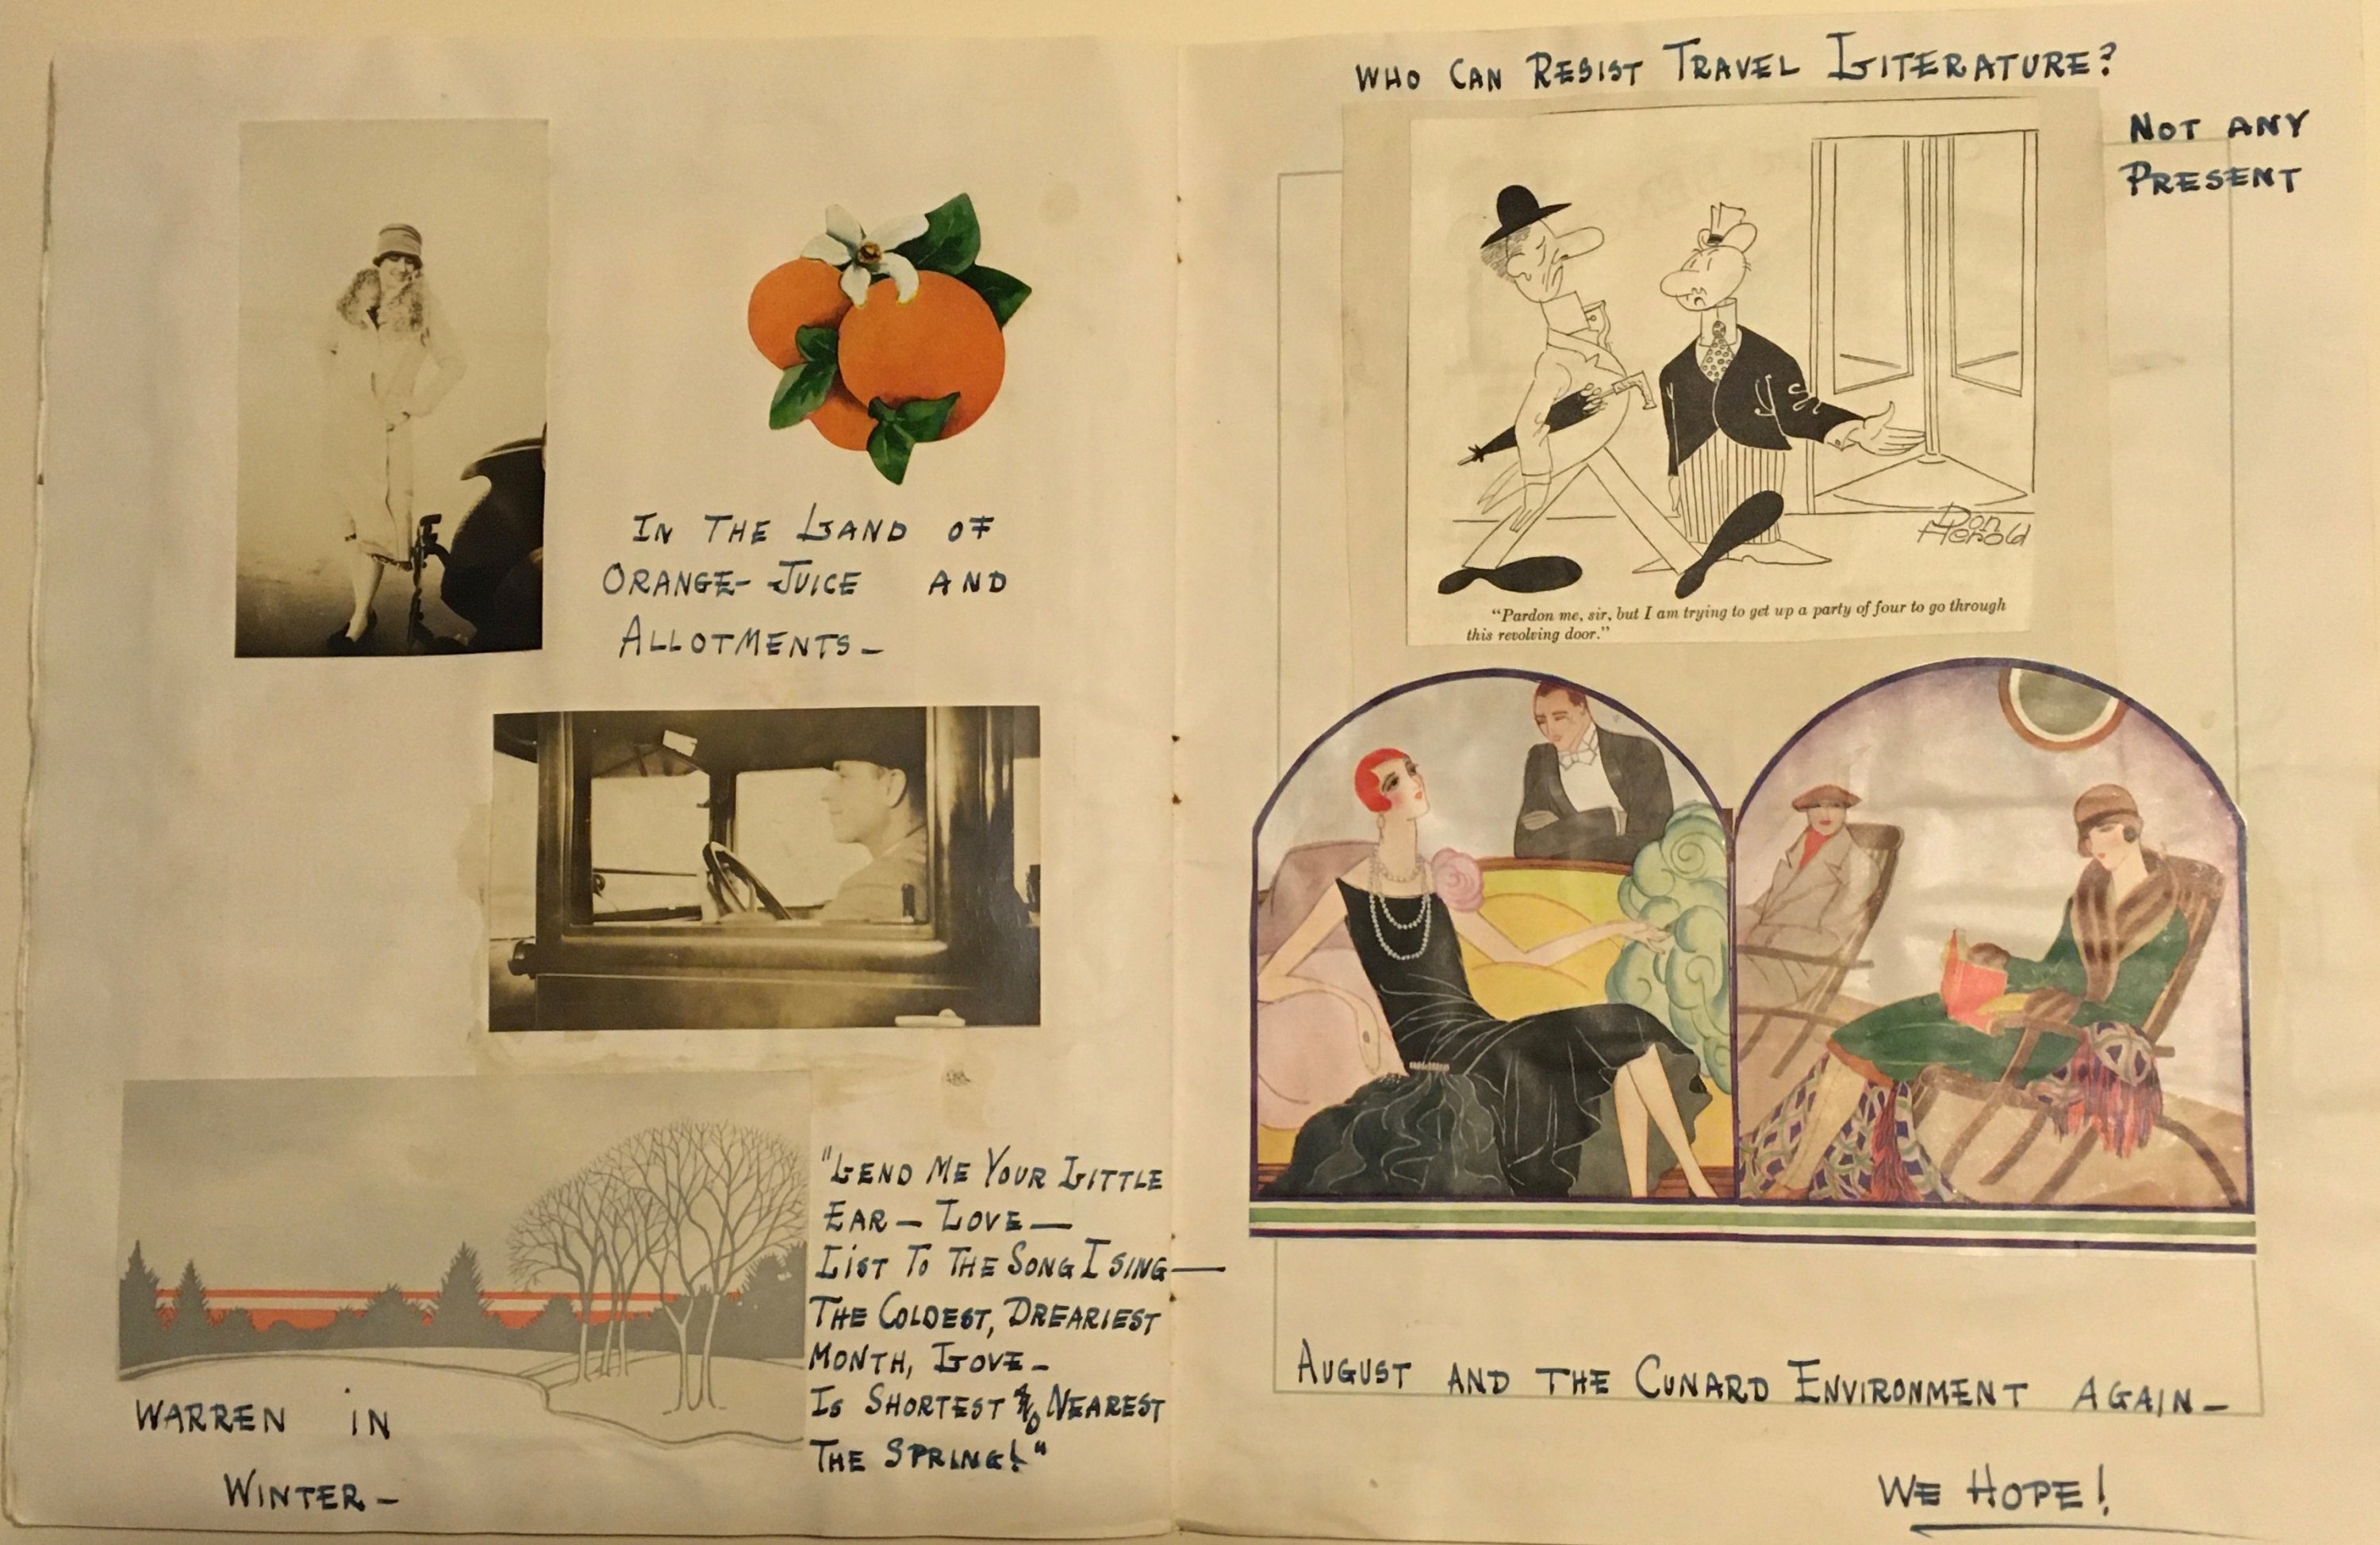 IN THE LAND OF
ORANGE-JUICE AND
ALLOTMENTS-
"LEND ME YOUR LITTLE
EAR- LOVE-
LIST TO THE SONG I SING-
THE COLDEST, DREARIEST
MONTH, LOVE-
IS SHORTEST & NEAREST
THE SPRING!"
WARREN IN
WINTER-
WHO CAN RESIST TRAVEL LITERATURE?
NOT ANY
PRESENT
Don
Herold
"Pardon me, sir, but I am trying to get up a party of four to go through
this revolving door."
AUGUST AND THE CUNARD ENVIRONMENT AGAIN-
WE HOPE!